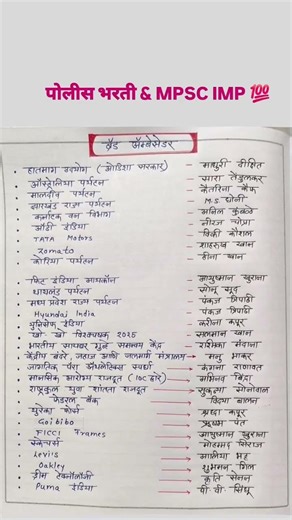 पोलीस भरती & MPSC IMP 💯
ब्रँड अ‍ॅम्बेसेडर
हातमाग उद्योग (ओडिशा सरकार) - माधुरी दीक्षित
ऑस्ट्रेलिया पर्यटन - सारा तेंडुलकर
मालदीव पर्यटन - कॅतरिना कैफ
झारखंड राज्य पर्यटन - M.S धोनी
कर्नाटक वन विभाग - अनिल कुंबळे
ऑडी इंडिया - नीरज चोप्रा
TATA Motors - विकी कौशल
Zomato - शाहरुख खान
कोरिया पर्यटन - हीना खान
फिट इंडिया आयकॉन - आयुष्मान खुराना
थायलंड पर्यटन - सोनू सूद
मध्य प्रदेश राज्य पर्यटन - पंकज त्रिपाठी
Hyundai India - पंकज त्रिपाठी
युनिसेफ इंडिया - करीना कपूर
खो खो विश्वचषक 2025 - सलमान खान
भारतीय सायबर गुन्हे समन्वय केंद्र - रश्मिका मंदाना
केंद्रीय बंदरे, जहाज आणि जलमार्ग मंत्रालय - मनु भाकर
जागतिक पॅरा अ‍ॅथलेटिक्स स्पर्धा - कंगना राणावत
मानसिक आरोग्य राजदूत (IOC द्वारे) - अभिनव बिंद्रा
राष्ट्रकुल युवा शांतता राजदूत - सुकन्या सोनोवाल
फेडरल बँक - विद्या बालन
युरेका फोर्ब्स - श्रद्धा कपूर
Goibibo - ऋषभ पंत
FICCI Frames - आयुष्मान खुराना
स्केचर्स - मोहम्मद सिराज
Levi's - आलिया भट्ट
Oakley - शुभमन गिल
ड्रीम टेक्नॉलॉजी - कृति सेनन
Puma इंडिया - पी.व्ही सिंधू